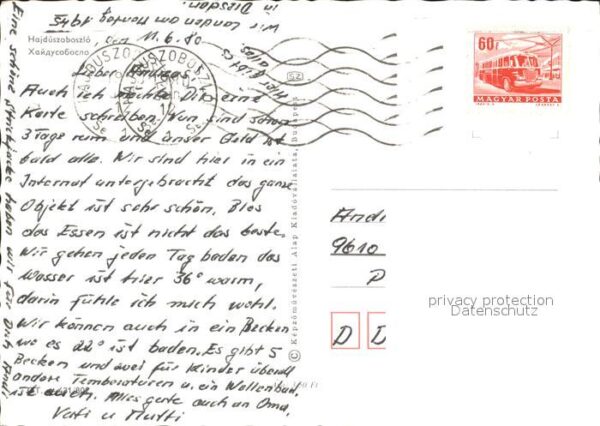 Hajdúszoboszló
Хайдусобосло
den 11.6.80
Lieber Andreas,
Auch ich möchte Dir eine
Karte schreiben. Nun sind schon
3 Tage rum und unser Geld ist
bald alle. Wir sind hier in ein
Internat untergebracht das ganze
Objekt ist sehr schön. Blos
das Essen ist nicht das beste.
Wir gehen jeden Tag baden das
Wasser ist hier 36° warm,
darin fühle ich mich wohl.
Wir können auch in ein Becken
wo es 22° ist baden. Es gibt 5
Becken und zwei für Kinder überall
andere Temperaturen u. ein Wellenbad,
ist auch. Alles gute auch an Oma,
Vati u Mutti
Eine schöne haben wir für Dich
Wir landen am Montag 19.45
in Dresden.
Hier gibt es
alles
SZ
60f
MAGYAR POSTA
© Képzőművészeti Alap Kiadóvállalata, Budapest
Andi
9610
P
D D
privacy protection
Datenschutz